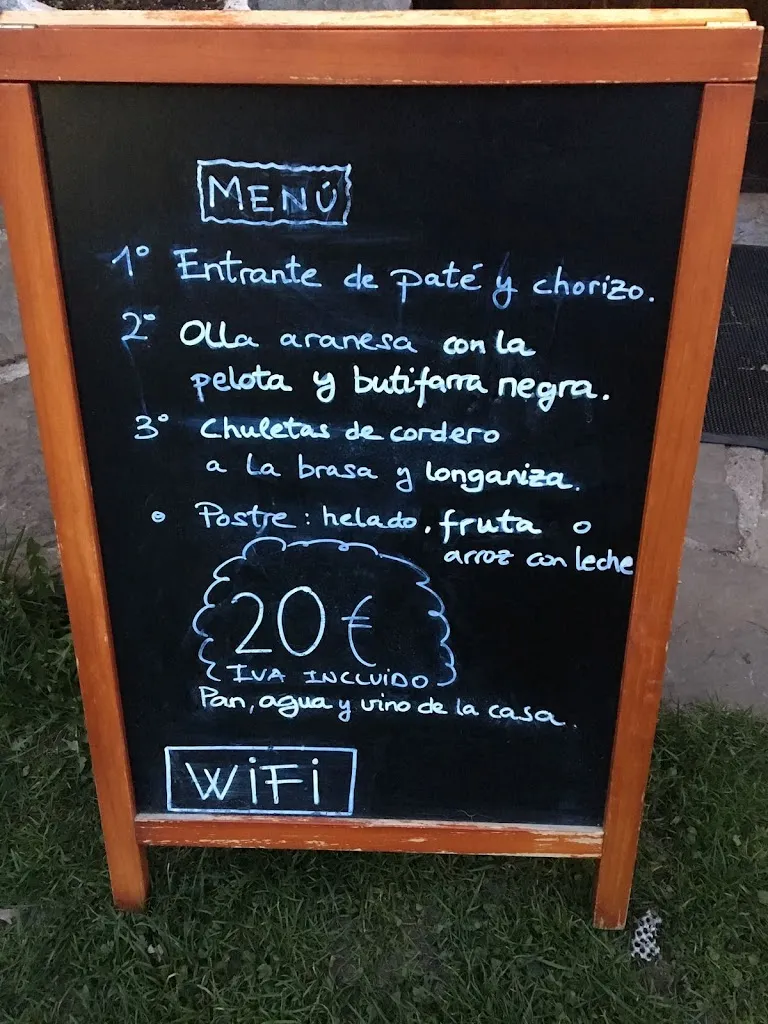 MENÚ
1º Entrante de paté y chorizo.
2º Olla aranesa con la
pelota y butifarra negra.
3º Chuletas de cordero
a la brasa y longaniza.
• Postre: helado, fruta o
arroz con leche
20 €
IVA INCLUIDO
Pan, agua y vino de la casa.
WiFi